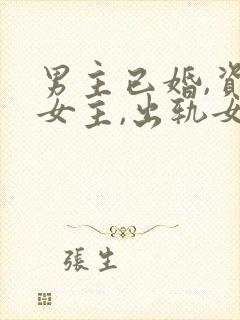 男主已婚,資
女主,出轨女
張生